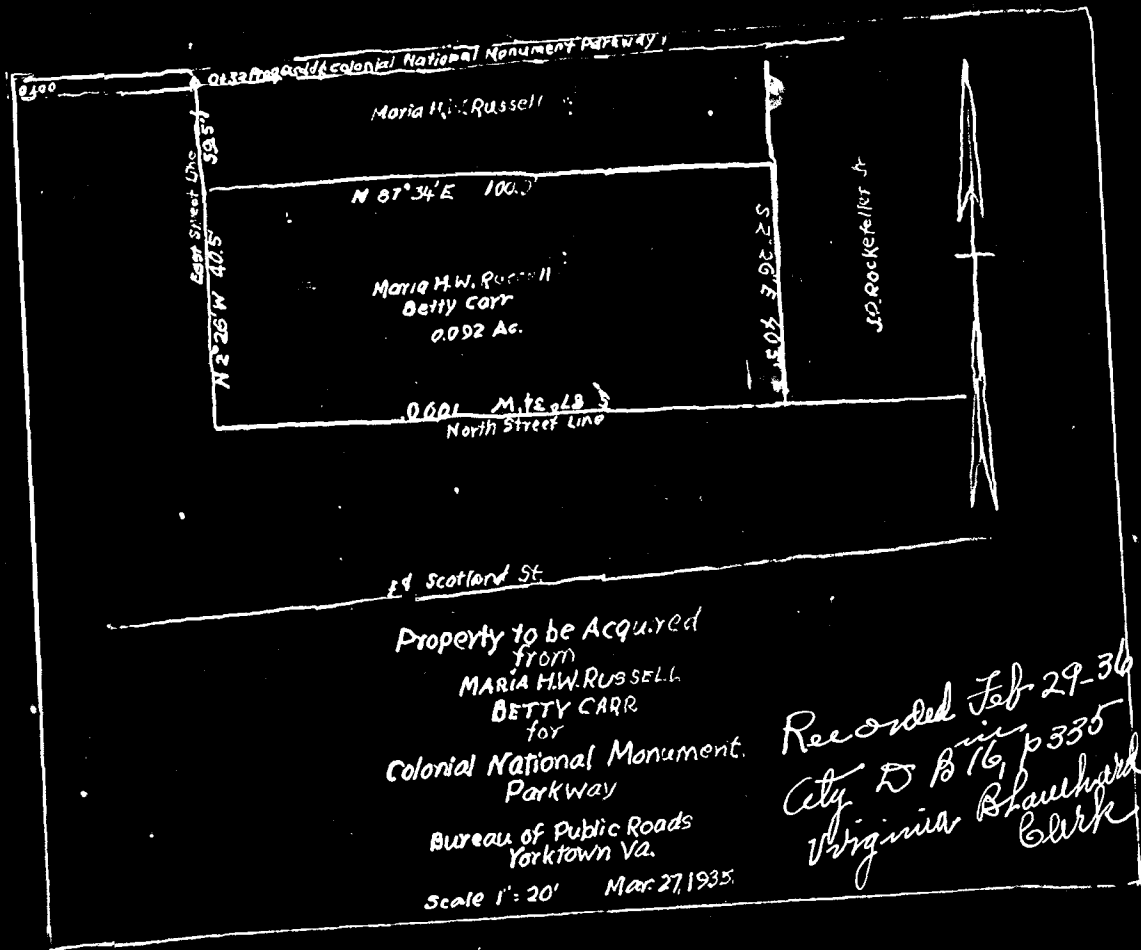 0+00
Colonial National Monument Parkway
Maria H.W. Russell
59.5'
East Street Line
N 87°34'E 100.0'
N 2°26'W 40.5'
Maria H.W. Russell
Betty Carr
0.092 Ac.
S 2°26'E 40.5'
J.D. Rockefeller Jr
S 87°34'W 100.0'
North Street Line
Scotland St.
Property to be Acquired
from
MARIA H.W. RUSSELL
BETTY CARR
for
Colonial National Monument.
Parkway
Bureau of Public Roads
Yorktown Va.
Scale 1" = 20' Mar. 27, 1935.
Recorded Feb 29-36
in
City D B 16, p 335
Virginia Blanchard
Clerk